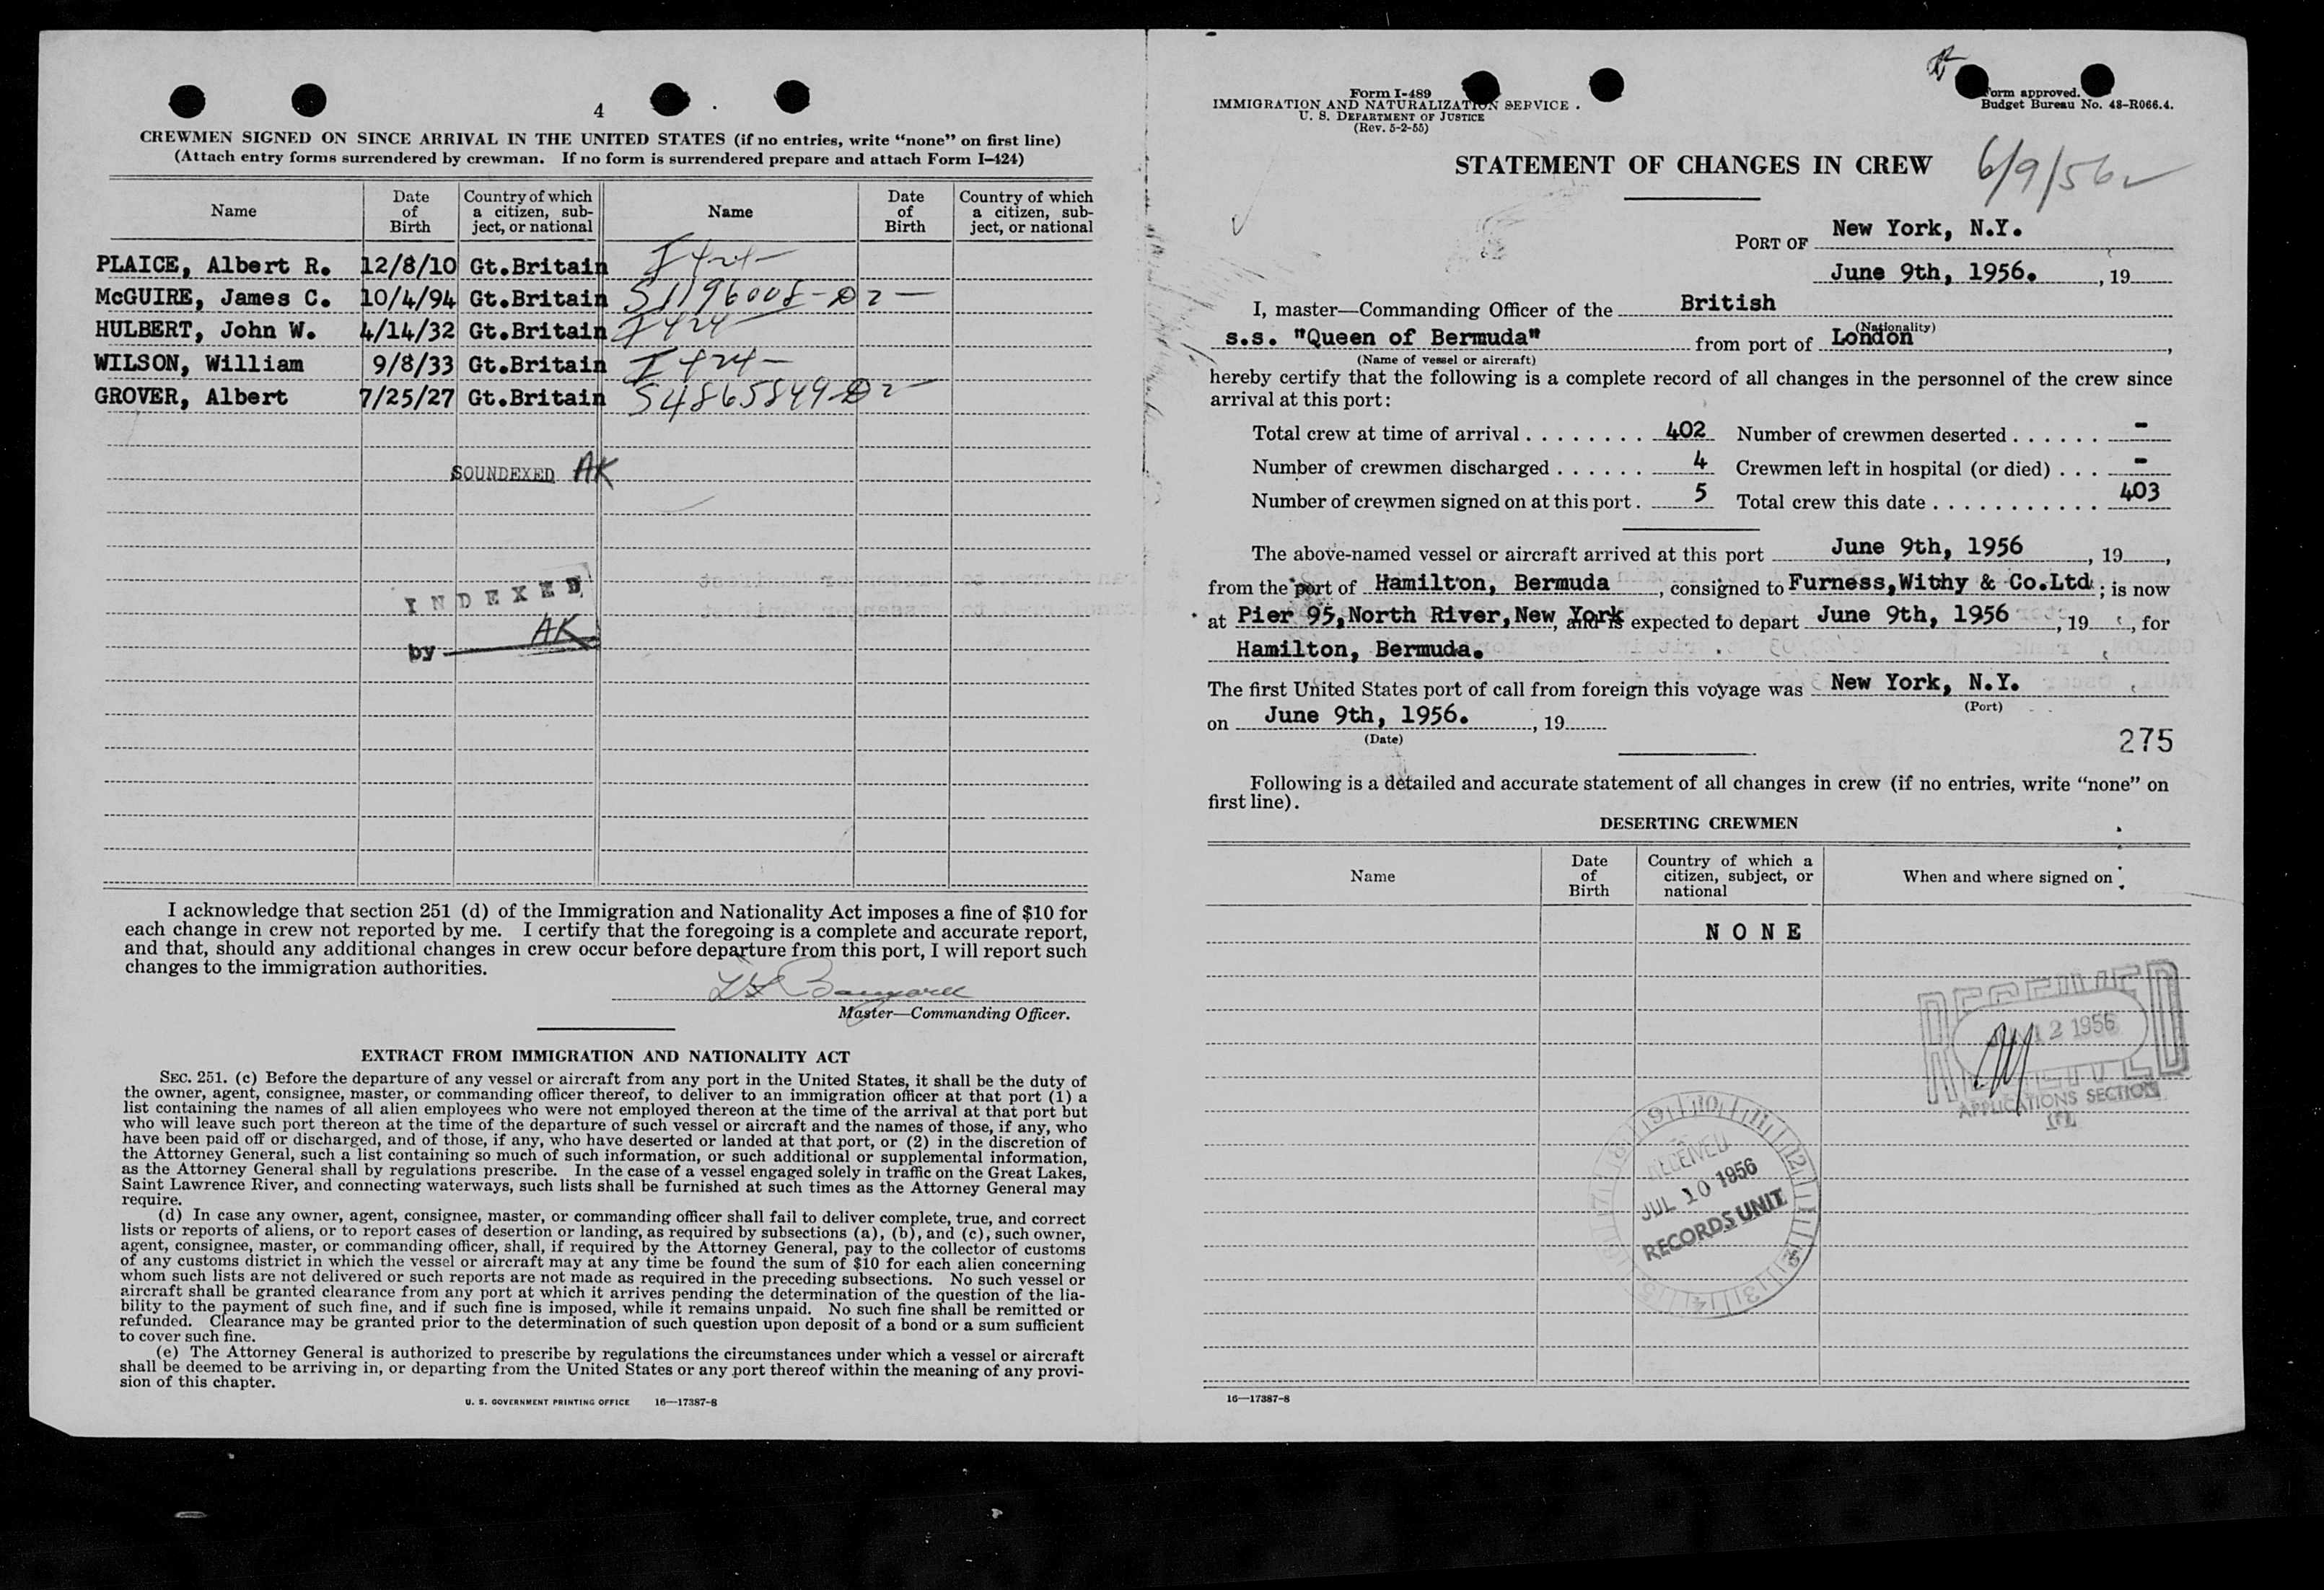 4
CREWMEN SIGNED ON SINCE ARRIVAL IN THE UNITED STATES (if no entries, write “none” on first line)
(Attach entry forms surrendered by crewman. If no form is surrendered prepare and attach Form I–424)
Name Date of Birth Country of which a citizen, sub-ject, or national Name Date of Birth Country of which a citizen, sub-ject, or national
PLAICE, Albert R. 12/8/10 Gt.Britain I 424 —
McGUIRE, James C. 10/4/94 Gt.Britain
HULBERT, John W. 4/14/32 Gt.Britain I 424
WILSON, William 9/8/33 Gt.Britain I 424 —
GROVER, Albert 7/25/27 Gt.Britain
SOUNDEXED AK
INDEXED
by AK
I acknowledge that section 251 (d) of the Immigration and Nationality Act imposes a fine of $10 for
each change in crew not reported by me. I certify that the foregoing is a complete and accurate report,
and that, should any additional changes in crew occur before departure from this port, I will report such
changes to the immigration authorities.
Master—Commanding Officer.
EXTRACT FROM IMMIGRATION AND NATIONALITY ACT
SEC. 251. (c) Before the departure of any vessel or aircraft from any port in the United States, it shall be the duty of
the owner, agent, consignee, master, or commanding officer thereof, to deliver to an immigration officer at that port (1) a
list containing the names of all alien employees who were not employed thereon at the time of the arrival at that port but
who will leave such port thereon at the time of the departure of such vessel or aircraft and the names of those, if any, who
have been paid off or discharged, and of those, if any, who have deserted or landed at that port, or (2) in the discretion of
the Attorney General, such a list containing so much of such information, or such additional or supplemental information,
as the Attorney General shall by regulations prescribe. In the case of a vessel engaged solely in traffic on the Great Lakes,
Saint Lawrence River, and connecting waterways, such lists shall be furnished at such times as the Attorney General may
require.
(d) In case any owner, agent, consignee, master, or commanding officer shall fail to deliver complete, true, and correct
lists or reports of aliens, or to report cases of desertion or landing, as required by subsections (a), (b), and (c), such owner,
agent, consignee, master, or commanding officer, shall, if required by the Attorney General, pay to the collector of customs
of any customs district in which the vessel or aircraft may at any time be found the sum of $10 for each alien concerning
whom such lists are not delivered or such reports are not made as required in the preceding subsections. No such vessel or
aircraft shall be granted clearance from any port at which it arrives pending the determination of the question of the lia-
bility to the payment of such fine, and if such fine is imposed, while it remains unpaid. No such fine shall be remitted or
refunded. Clearance may be granted prior to the determination of such question upon deposit of a bond or a sum sufficient
to cover such fine.
(e) The Attorney General is authorized to prescribe by regulations the circumstances under which a vessel or aircraft
shall be deemed to be arriving in, or departing from the United States or any port thereof within the meaning of any provi-
sion of this chapter.
U. S. GOVERNMENT PRINTING OFFICE 16—17387-8
Form I-489
IMMIGRATION AND NATURALIZATION SERVICE
U. S. DEPARTMENT OF JUSTICE
(Rev. 5-2-55)
Form approved.
Budget Bureau No. 43-R066.4.
STATEMENT OF CHANGES IN CREW 6/9/56
PORT OF New York, N.Y.
June 9th, 1956. , 19
I, master—Commanding Officer of the British
(Nationality)
s.s. "Queen of Bermuda" from port of London ,
(Name of vessel or aircraft)
hereby certify that the following is a complete record of all changes in the personnel of the crew since
arrival at this port:
Total crew at time of arrival . . . . . . . . 402 Number of crewmen deserted . . . . . . -
Number of crewmen discharged . . . . . . 4 Crewmen left in hospital (or died) . . . -
Number of crewmen signed on at this port . 5 Total crew this date . . . . . . . . . . . 403
The above-named vessel or aircraft arrived at this port June 9th, 1956 , 19 ,
from the port of Hamilton, Bermuda , consigned to Furness,Withy & Co.Ltd ; is now
at Pier 95,North River,New York , and is expected to depart June 9th, 1956 , 19 , for
Hamilton, Bermuda.
The first United States port of call from foreign this voyage was New York, N.Y.
(Port)
on June 9th, 1956. , 19
(Date)
275
Following is a detailed and accurate statement of all changes in crew (if no entries, write “none” on
first line).
DESERTING CREWMEN
Name Date of Birth Country of which a citizen, subject, or national When and where signed on
NONE
RECEIVED
12 1956
APPLICATIONS SECTION
RECEIVED
JUL 10 1956
RECORDS UNIT
16—17387-8